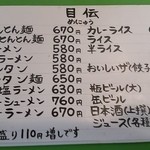 目伝
めにゅう
とん麺 670円
とんとん麺 670円
ーメン 580円
ーメン 580円
タン 580円
タン麺 650円
塩ラーメン 630円
ーシューメン 680円
ラーメン 580円
盛り110円増しです
カレーライス
ライス
半ライス
おいしいザ(餃子
瓶ビール(大)
缶ビール
日本酒(上撰)
ジュース(各種